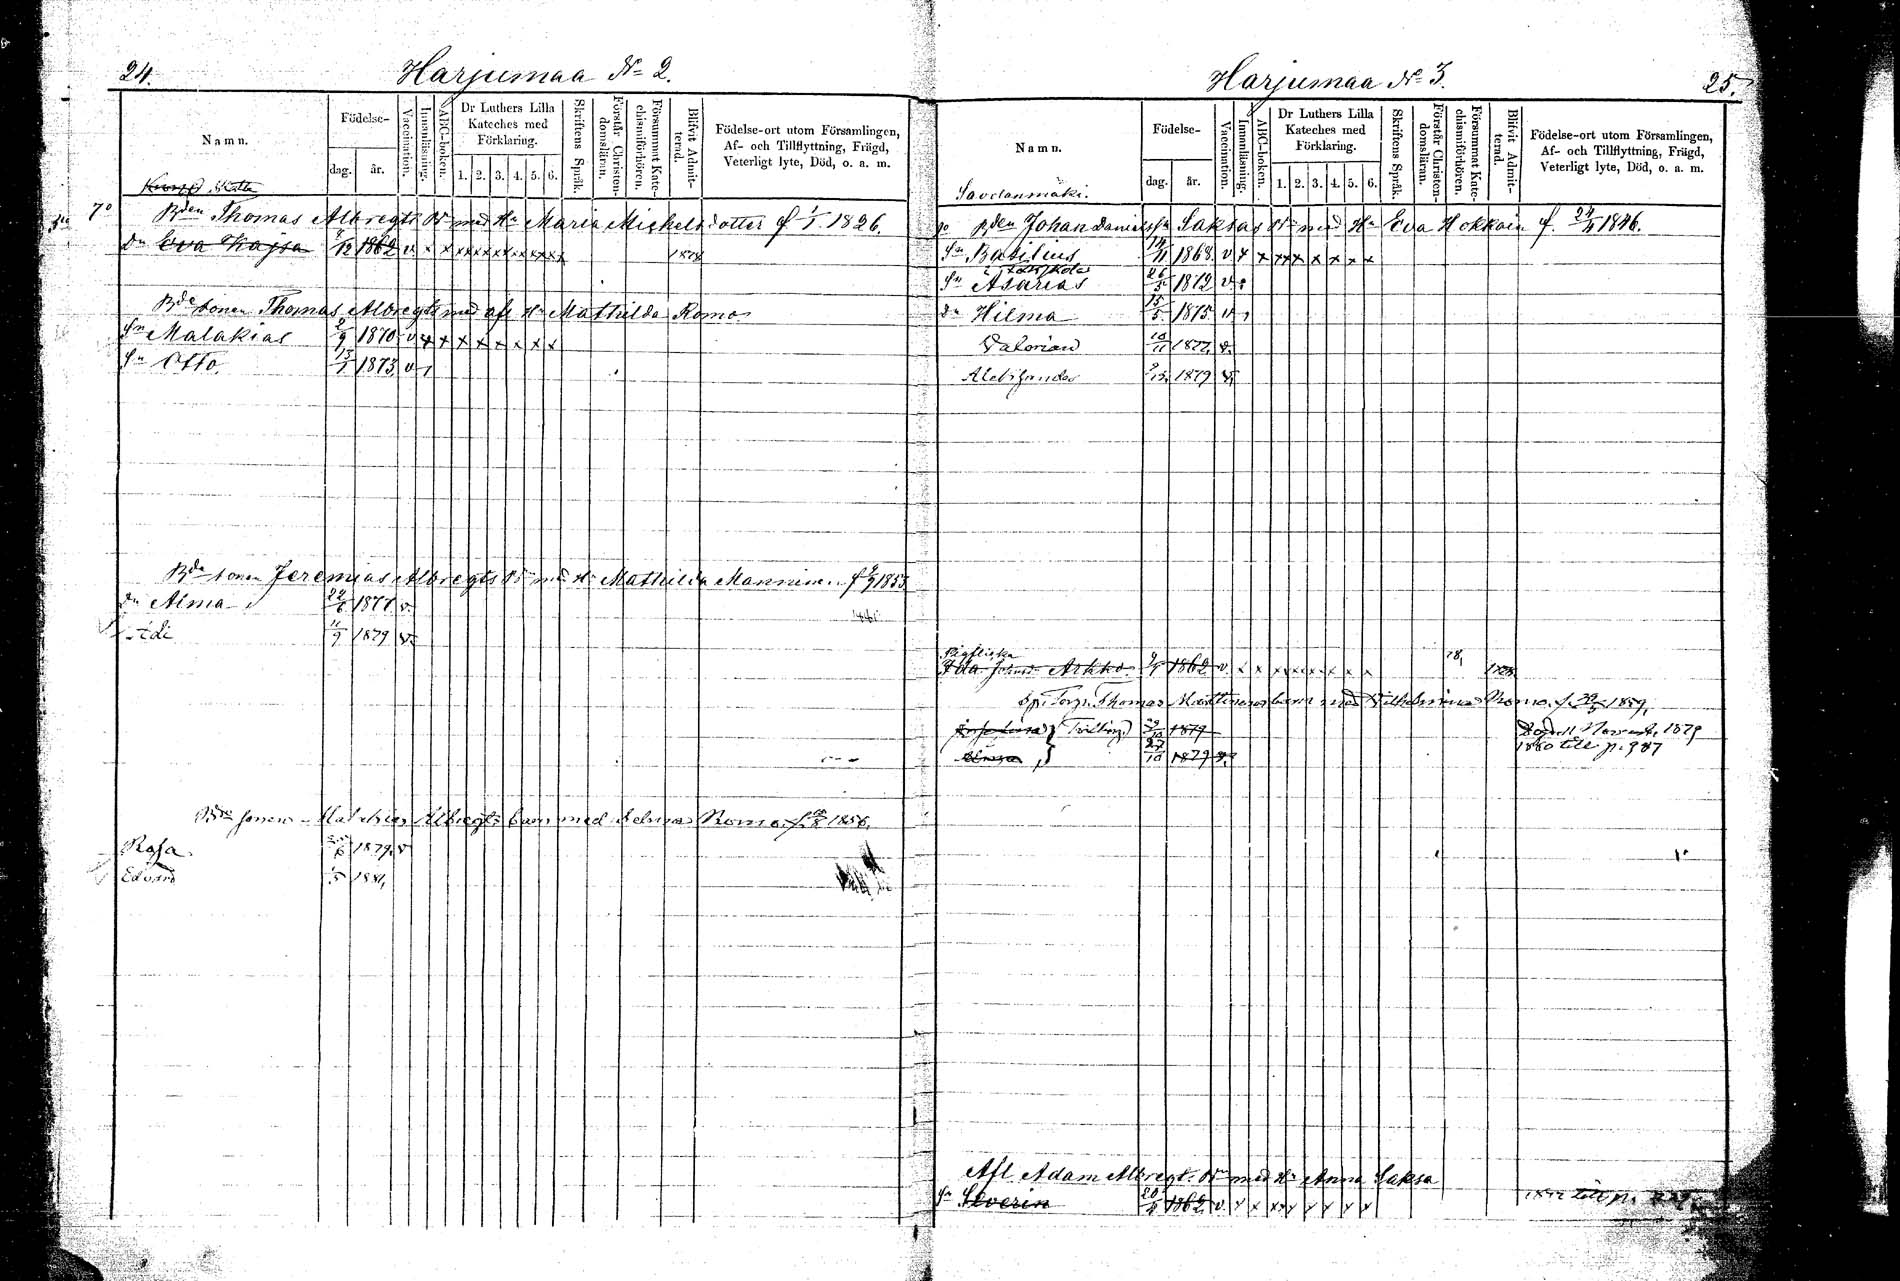 24.
Harjumaa No 2.
Namn.
Födelse-
dag.
år.
Vaccination.
Innanläsning.
ABC-boken.
Dr Luthers Lilla Kateches med Förklaring.
1. 2. 3. 4. 5. 6.
Skriftens Språk.
Förstår Christendomsläran.
Försummat Katechismiförhören.
Blifvit Admitterad.
Födelse-ort utom Församlingen,
Af- och Tillflyttning, Frägd,
Veterligt lyte, Död, o. a. m.
7o Bden Thomas Albregts Bn med Hu Maria Michelsdotter f 1/1. 1826.
Dr Eva Kajsa /12 1862 v. x x x x x x x x x x x x 1878
Bde sonen Thomas Albregts med afl Hu Mathilda Romo
Sn Malakias 2/9 1870 v x x x x x x x x
Sn Otto. 13/1 1873 v 1
Bde sonen Jeremias Albregts Bn med Hu Mathilda Manninen f 9 1853
Dr Alma 22/6 1877 v.
11/9 1879 v.
Bde sonen Albregts barn med Selma Romo f. /8 1856.
Rosa /6 1879. v
Edvard /5 1881,
Harjumaa No 3.
25.
Namn.
Födelse-
dag.
år.
Vaccination.
Innanläsning.
ABC-boken.
Dr Luthers Lilla Kateches med Förklaring.
1. 2. 3. 4. 5. 6.
Skriftens Språk.
Förstår Christendomsläran.
Försummat Katechismiförhören.
Blifvit Admitterad.
Födelse-ort utom Församlingen,
Af- och Tillflyttning, Frägd,
Veterligt lyte, Död, o. a. m.
Savolanmäki.
Bden Johan Danielssn Saksas Bn med Hu Eva Hokkain f. 24/4 1846.
Sn Basilius 14/11 1868. v x x x x x x x x x
Sn Asarias 26/3 1872 v
Dr Hilma 15/5 1875. v
Valorian 10/11 1877. v.
Aleksander /12. 1879 v.
Ida Arkko 9/ 1862 v. x x x x x x x x x
Torp. Thomas barn med Vilhelmina Romo. f. 1859,
Tvilling. 29/10 1879 11 Novemb. 1879
27/10 1879 v. 1880 till p. 987
Afl Adam Albregts Bn med Hu Anna Saksa
Sn Severin 20/ 1862 v. x x x x x x x x till p.